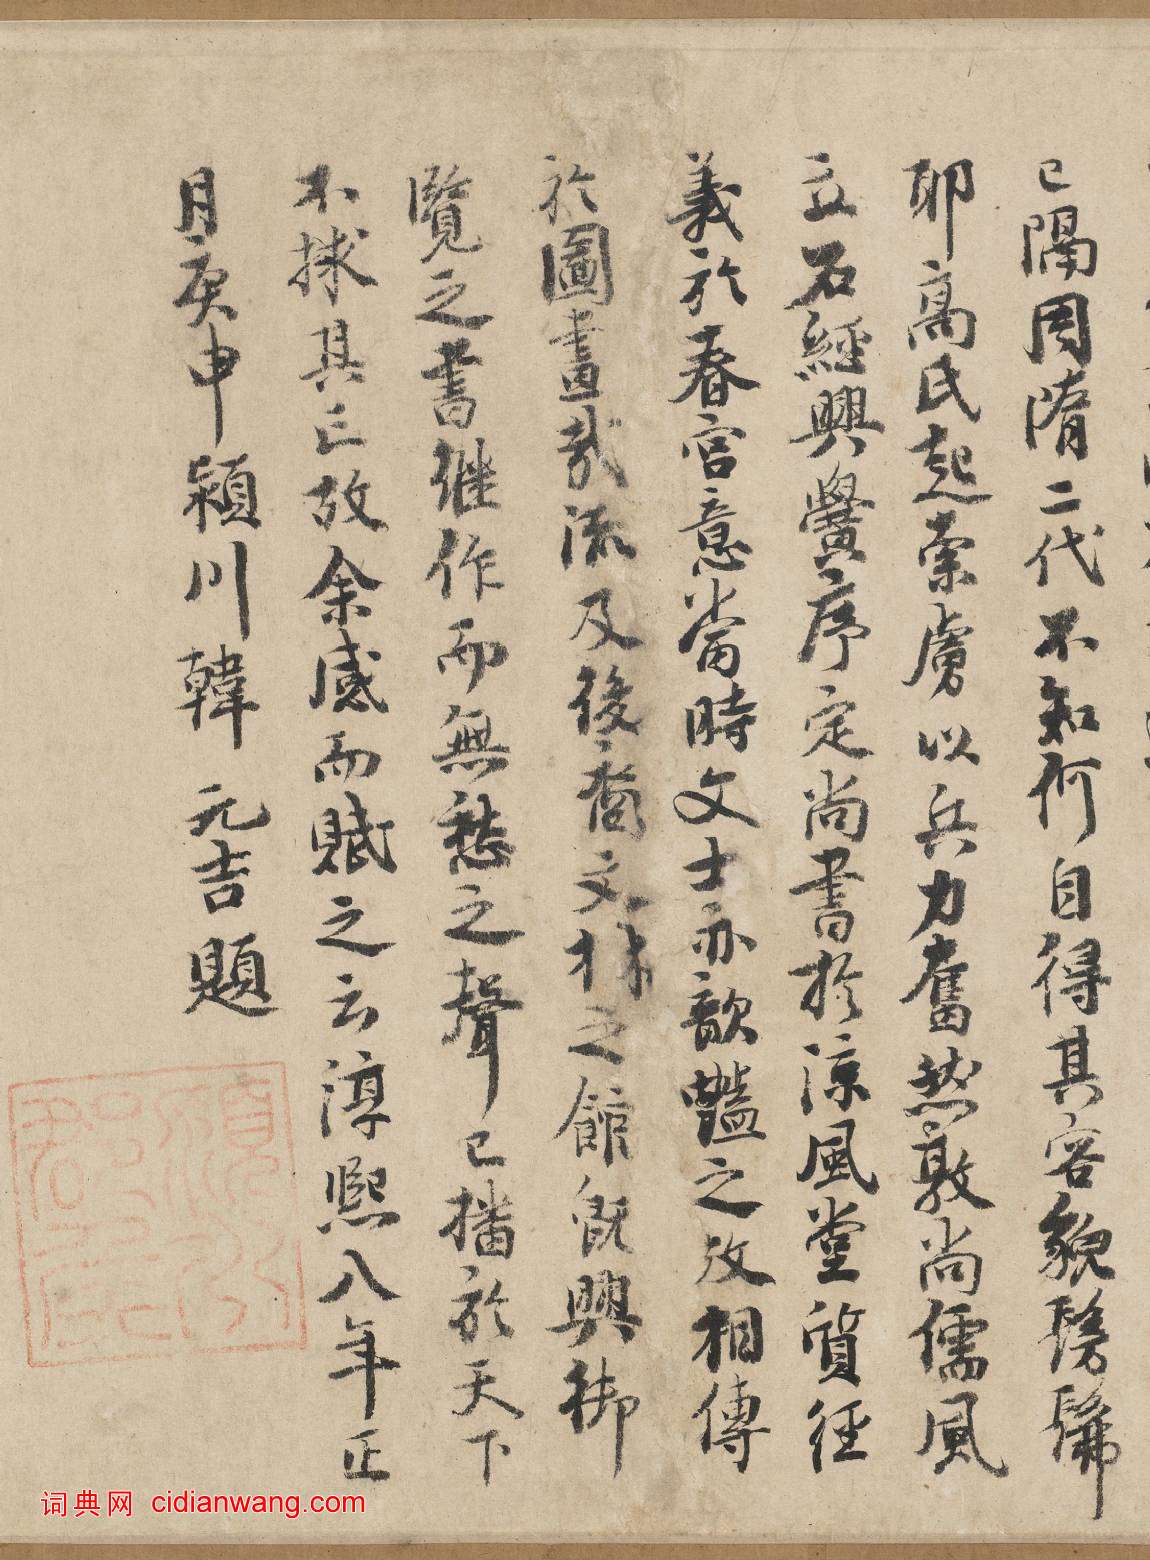 已隔周隋二代不知何自得其容貌髣髴
耶高氏起索虜以兵力奮然敦尚儒風
立石經興黌序定尚書於涼風堂質経
義於春宮意當時文士亦歆豔之故相傳
於圖畫哉流及後裔文林之館既興御
覽之書継作而無愁之聲已播於天下
不捄其亡故余感而賦之云淳熙八年正
月庚申潁川韓元吉題
词典网 cidianwang.com